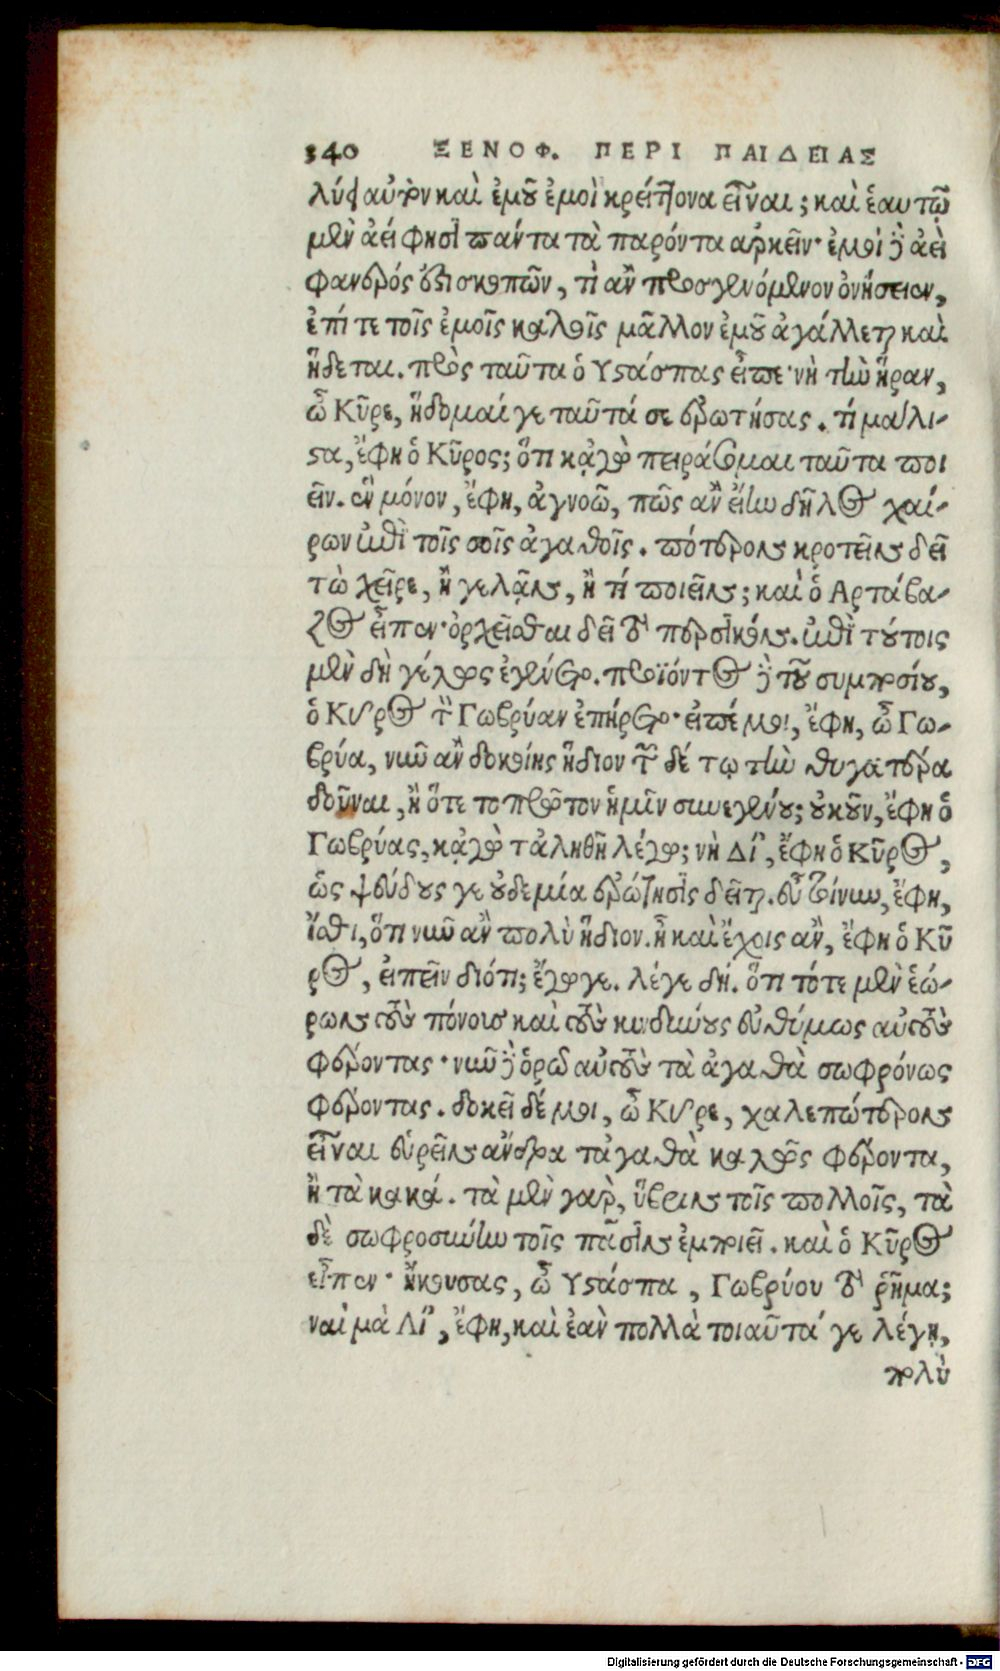 340 ΞΕΝΟΦ. ΠΕΡΙ ΠΑΙΔΕΙΑΣ
λύει αὐτὸν καὶ ἐμοῦ ἐμοὶ κρείττονα εἶναι; καὶ ἑαυτῷ
μὲν ἀεί φησι πάντα τὰ παρόντα ἀρκεῖν· ἐμοὶ δὲ ἀεὶ
φανερός ἐπισκοπῶν, τὶ ἂν προσγενόμενον ὀνήσειεν,
ἐπί τε τοῖς ἐμοῖς καλοῖς μᾶλλον ἐμοῦ ἀγάλλεται καὶ
ἥδεται. πρὸς ταῦτα ὁ Υστάσπας εἶπε· νὴ τὴν ἥραν,
ὦ Κῦρε, ἥδομαί γε ταῦτά σε ἐρωτήσας. τί μάλι-
στα, ἔφη ὁ Κῦρος; ὅτι κᾀγὼ πειράσομαι ταῦτα ποι
εῖν. ἓν μόνον, ἔφη, ἀγνοῶ, πῶς ἂν εἴην δῆλος χαί-
ρων ἐπὶ τοῖς σοῖς ἀγαθοῖς. πότερον κροτεῖν δεῖ
τὼ χεῖρε, ἢ γελᾷν, ἢ τί ποιεῖν; καὶ ὁ Αρτάβα-
ζος εἶπεν· ὀρχεῖσθαι δεῖ τὸ περσικόν. ἐπὶ τούτοις
μὲν δὴ γέλως ἐγένετο. προϊόντος δὲ τοῦ συμποσίου,
ὁ Κῦρος τὸν Γωβρύαν ἐπήρετο· εἰπέ μοι, ἔφη, ὦ Γω-
βρύα, νῦν ἂν δοκοίης ἥδιον τῶν δέ τῳ τὴν θυγατέρα
δοῦναι, ἢ ὅτε τὸ πρῶτον ἡμῖν συνεγένου; οὐκοῦν, ἔφη ὁ
Γωβρύας, κᾀγὼ τἀληθῆ λέγω; νὴ Δί’, ἔφη ὁ Κῦρος,
ὡς ψεύδους γε οὐδεμία ἐρώτησις δεῖται. εὖ τοίνυν, ἔφη,
ἴσθι, ὅτι νῦν ἂν πολὺ ἥδιον. ἦ καὶ ἔχοις ἂν, ἔφη ὁ Κῦ
ρος, εἰπεῖν διότι; ἔγωγε. λέγε δή. ὅτι τότε μὲν ἑώ-
ρων τοὺς πόνους καὶ τοὺς κινδύνους εὐθύμως αὐτοὺς
φέροντας· νῦν δὲ ὁρῶ αὐτοὺς τὰ ἀγαθὰ σωφρόνως
φέροντας. δοκεῖ δέ μοι, ὦ Κῦρε, χαλεπώτερον
εἶναι εὑρεῖν ἄνδρα τἀγαθὰ καλῶς φέροντα,
ἢ τὰ κακά. τὰ μὲν γὰρ, ὕβριν τοῖς πολλοῖς, τὰ
δὲ σωφροσύνην τοῖς πᾶσιν ἐμποιεῖ. καὶ ὁ Κῦρος
εἶπεν· ἤκουσας, ὦ Υστάσπα, Γωβρύου τὸ ῥῆμα;
ναὶ μὰ Δί’, ἔφη, καὶ ἐὰν πολλὰ τοιαῦτά γε λέγῃ,
πολὺ
Digitalisierung gefördert durch die Deutsche Forschungsgemeinschaft - DFG